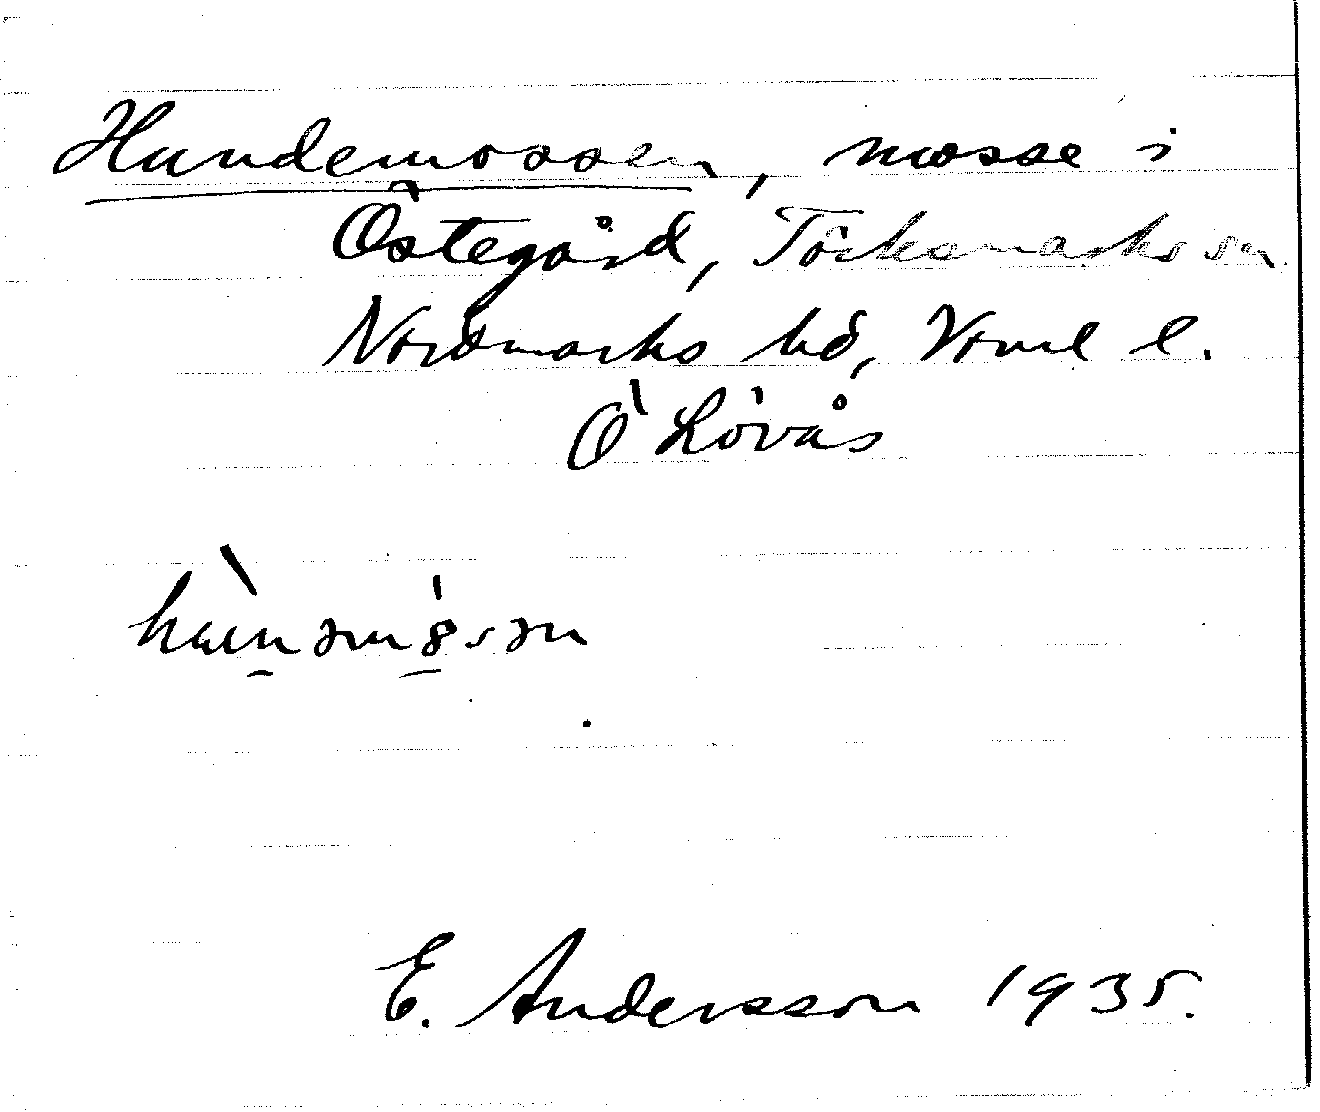 Hundemossen, mosse i
Östegård, Töcksmarks sn
Nordmarks hd, Vrml l.
Ö Lövås
E. Andersson 1935.